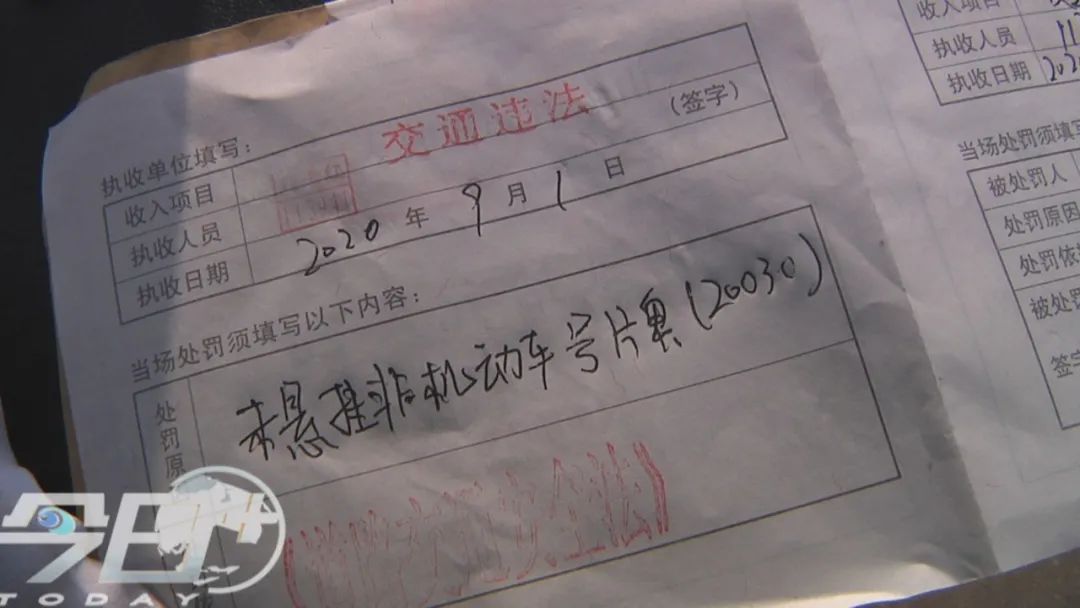 执收单位填写：
收入项目 交通违法
执收人员 （签字）
执收日期 2020 年 9 月 1 日
当场处罚须填写以下内容：
处罚原
未悬挂非机动车号片 (20030)
收入项目
执收人员 11
执收日期 202
当场处罚须填写
被处罚人
处罚原因
处罚依
被处罚
签字
今日
TODAY